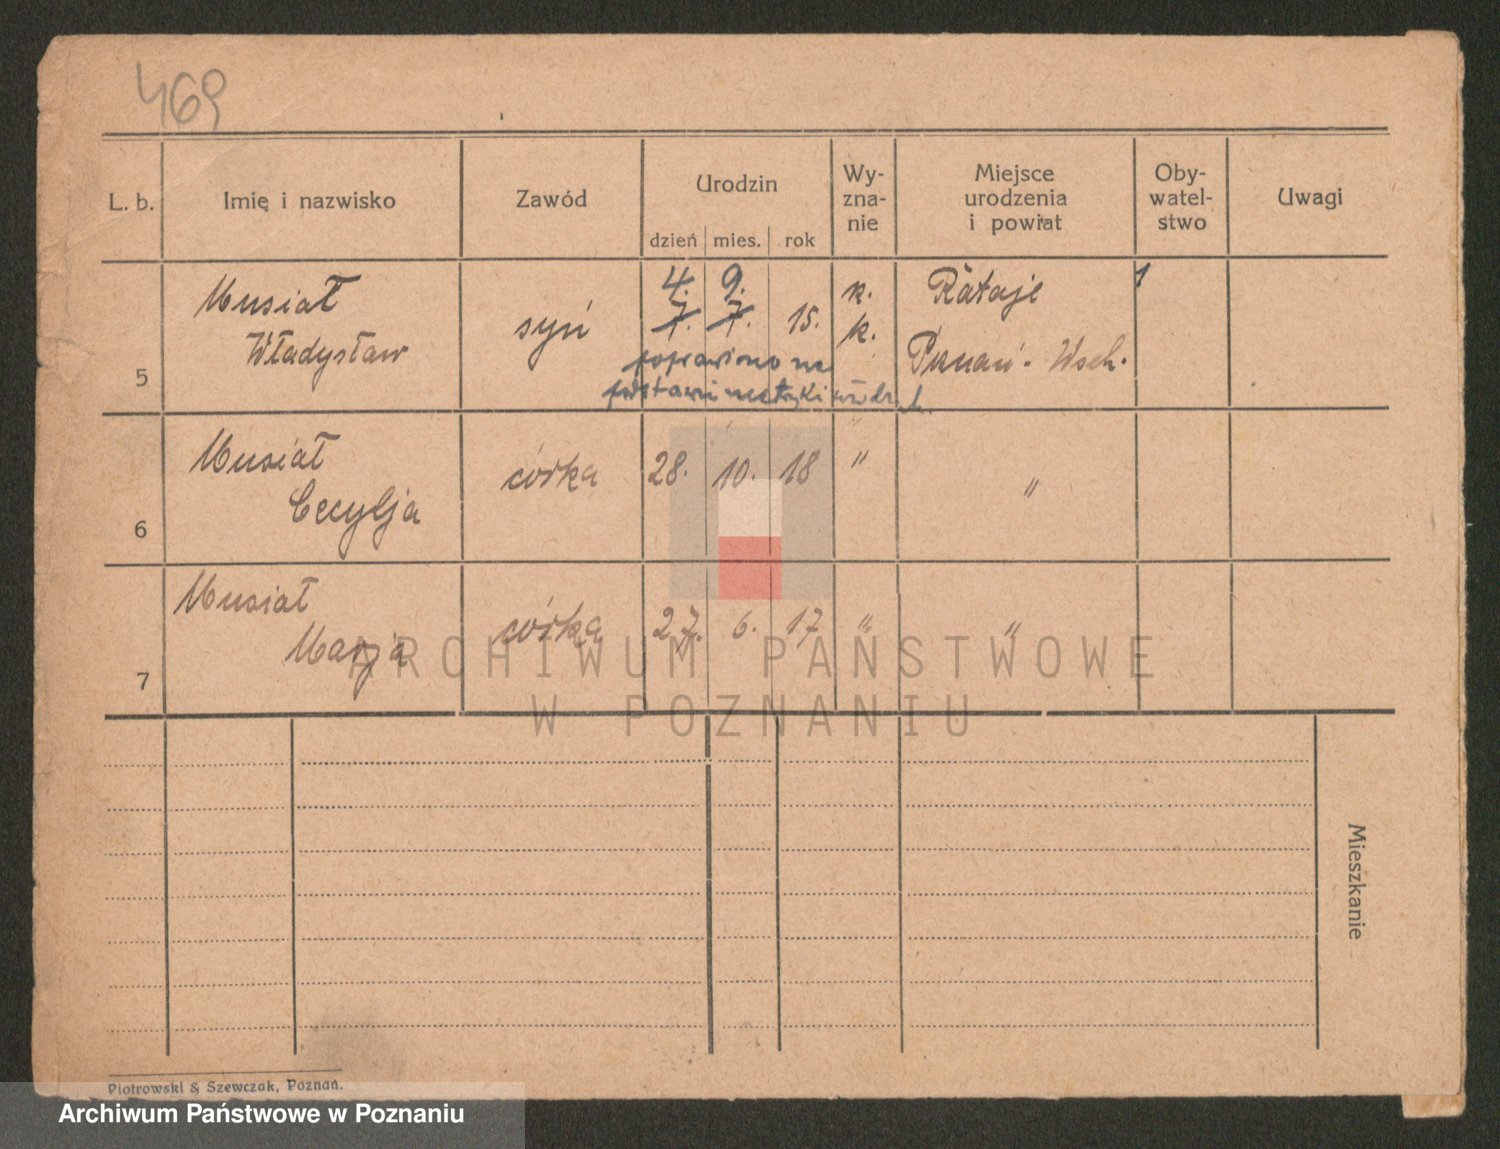 469
L. b. Imię i nazwisko Zawód Urodzin Wy-zna-nie Miejsce urodzenia i powiat Oby-watel-stwo Uwagi
dzień mies. rok
4. 9.
Musiał syn 7. 7. 15. k. Rataje
Władysław k. Poznań - Wsch.
5
poprawiono na
podstawie metryki urodz.
Musiał córka 28. 10. 18 " "
Cecylja
6
Musiał córka 27. 6. 17 " "
Marja
7
ARCHIWUM PAŃSTWOWE
W POZNANIU
Mieszkanie
Piotrowski & Szewczak, Poznań.
Archiwum Państwowe w Poznaniu